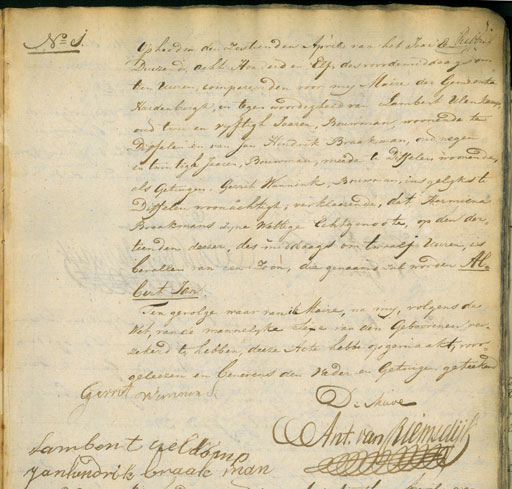 No. 1.
Op heeden den Zestienden April van het Jaar
Duizend, acht Honderd en Elf, des voordemiddags om
tien Uuren, compareerden voor my Maire der Gemeente
Hardenbergh, en tegenwoordigheid van Lambert Veldkamp,
oud twee en vyftigh Jaaren, Bouwman, woonende te
Diffelen en van Jan Hendrik Braakman, oud negen
en twintigh Jaaren, Bouwman, mede te Diffelen woonende,
als Getuigen. Gerrit, Bouwman, insgelyks te
Diffelen woonachtigh, verklaarende, dat Hermina
Braakmans zyne Wettige Echtgenoote, op den der-
tienden deezer, des middaags om twaalf Uuren, is
bevallen van een Zoon, die genaamt zal worden Al-
bert Jan.
Ten gevolge waar van ik Maire, na my, volgens de
Wet, van de mannelyke sexe van den Geboorenen ver-
zekerd te hebben, deeze Acte hebbe opgemaakt, voor-
geleezen en beneevens den Vader en Getuigen geteekend
Gerrit
De Maire
Ant. van Riemsdijk
Lambert veldkamp
jan hendrik braakman